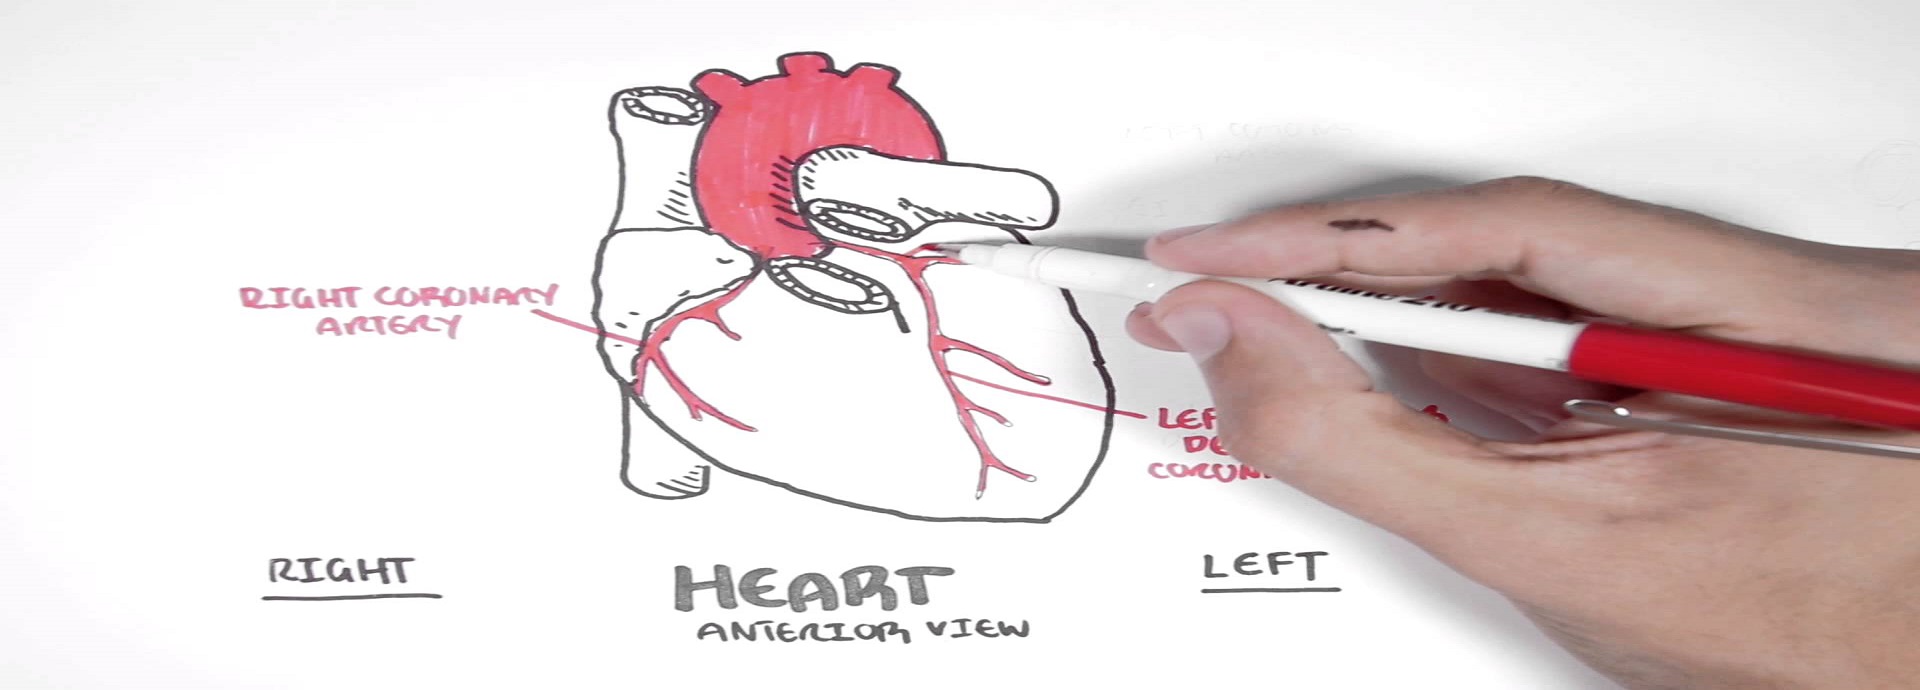 RIGHT CORONARY
ARTERY
RIGHT
HEART
ANTERIOR VIEW
LEFT